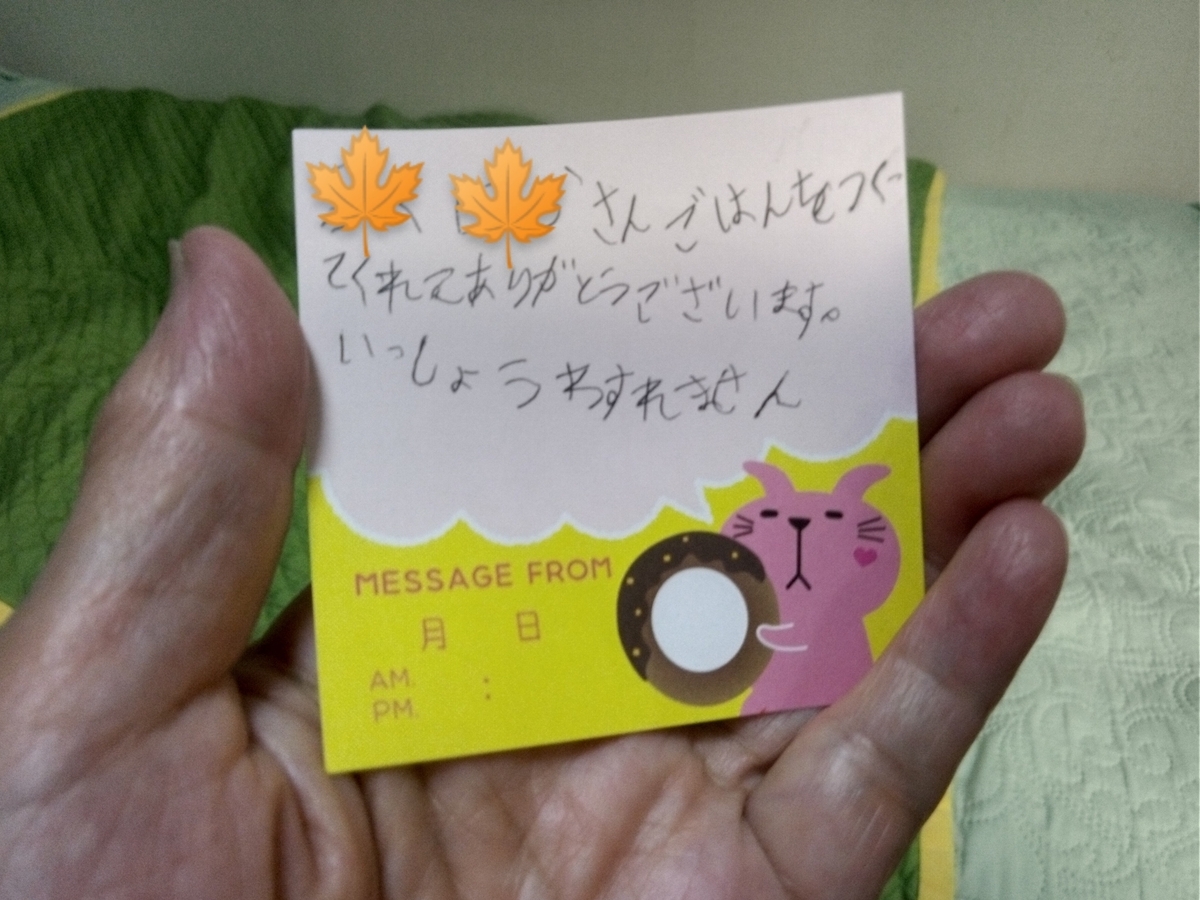 さんごはんをつくっ
てくれてありがとうございます。
いっしょうわすれません
MESSAGE FROM
月 日
AM.
PM. :